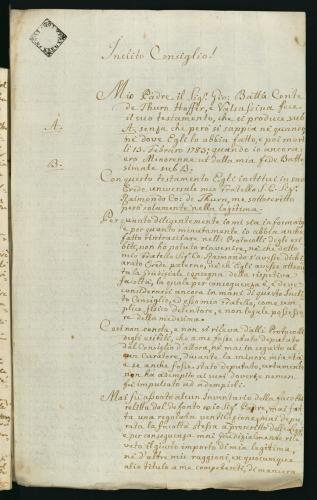 Inclito Consiglio!
Mio Padre il Sigr. Gio: Batta Conte
de Thurn Hoffer, e Valsassina fece
il suo testamento, che si produce sub
A. senza che però si sappia nè quando,
nè dove Egli lo abbia fatto, e poi morì
li 13. Febraro 1783; quando io ancora
ero Minorenne ut dalla mia fede Batte-
simale sub B.
A.
B.
Con questo testamento Egli instituì in suo
Erede universale mio Fratello S. E. Sigr.
Raimondo Co: de Thurn, me sottoscritto
però solamente nella legittima.
Per quanto diligentemente io mi sia informato
e per quanto minutamente io abbia anche
fatto rintracciare nelli Protocolli degli es-
ibiti, non ho potuto rinvenire, nè che detto
mio Fratello Sigr. Co: Raimondo s'avesse dichia-
rato Erede paterno, nè ch' Egli avesse ottenu-
ta la Giudiciale consegna della rispettiva
facoltà, la quale per conseguenza, è, e deve
considerarsi ancora in mano di questo Incli-
to Consiglio, ed esso mio Fratello, come sem-
plice, fisico detentore, e non legale possesso-
re della medesima.
Così non consta, e non si rileva dalli Protocolli
degli esibiti, che a me fosse stato deputato
dal Consiglio d'allora, nè mai in seguito al-
cun Curatore, durante la minore mia età
e se anche fosse stato deputato, certamente
non ha adempito ai suoi doveri, nè meno
fù impulsato ad adempirli.
Mai fù assonto alcun Inventario della facoltà
relitta dal defonto mio Sigr. Padre, mai fat-
ta una regolata ventilazione, mai depu-
rata la facoltà stessa a prescritto delle Leggi
e per conseguenza mai giudizialmente rile-
vato il giusto importo di mia legittima,
nè d'altre mie raggioni ex quocunque
alio titulo a me competenti, di maniera